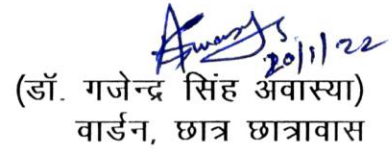 20/1/22
(डॉ. गजेन्द्र सिंह अवास्या)
वार्डन, छात्र छात्रावास